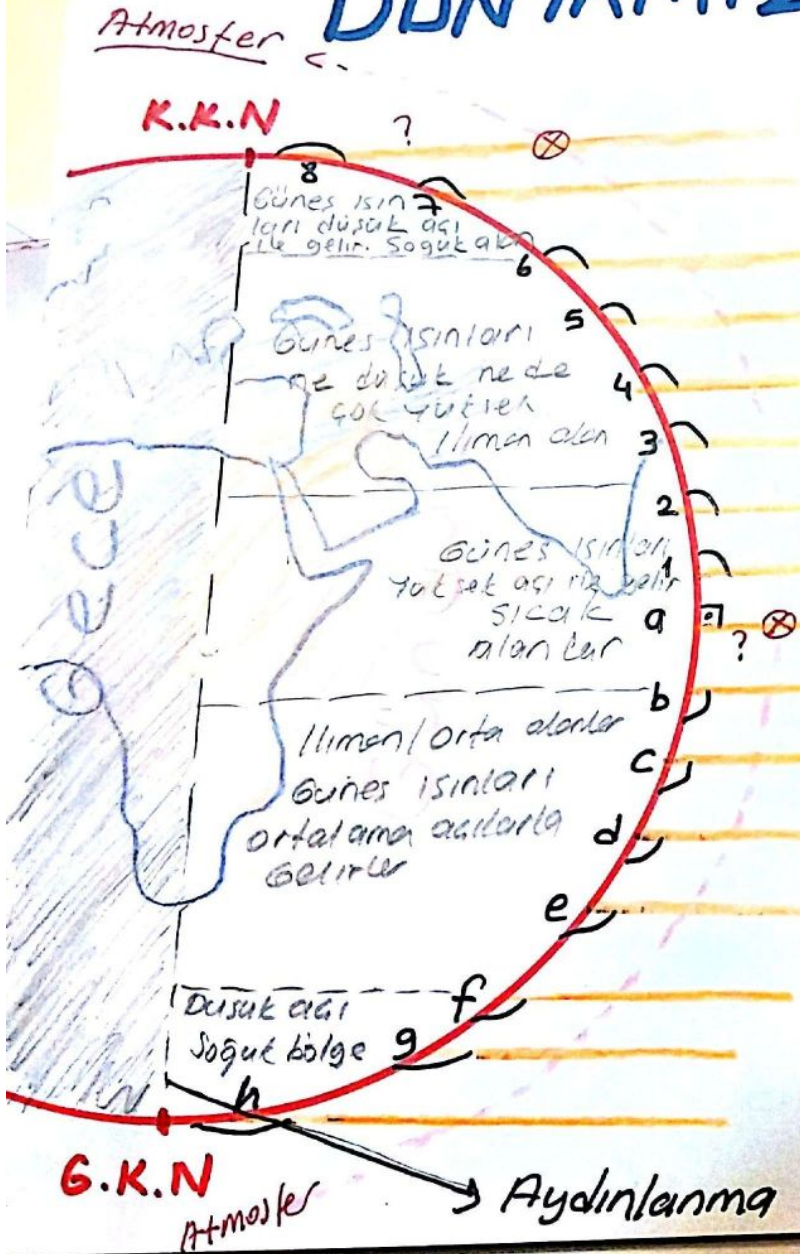 Atmosfer
K.K.N
?
8
7
Güneş ışın
ları düşük açı
ile gelir. Soğuk
6
5
Güneş ışınları
ne düşük nede
çok yüksek
4
ılıman alan
3
2
Gece
Güneş ışınları
1
yüksek açı
gelir
sıcak
a
?
alanlar
b
Ilıman/Orta alanlar
c
Güneş ışınları
ortalama açılarla
d
Gelirler
e
Düşük açı
f
Soğuk bölge
g
h
G.K.N
Aydınlanma
Atmosfer